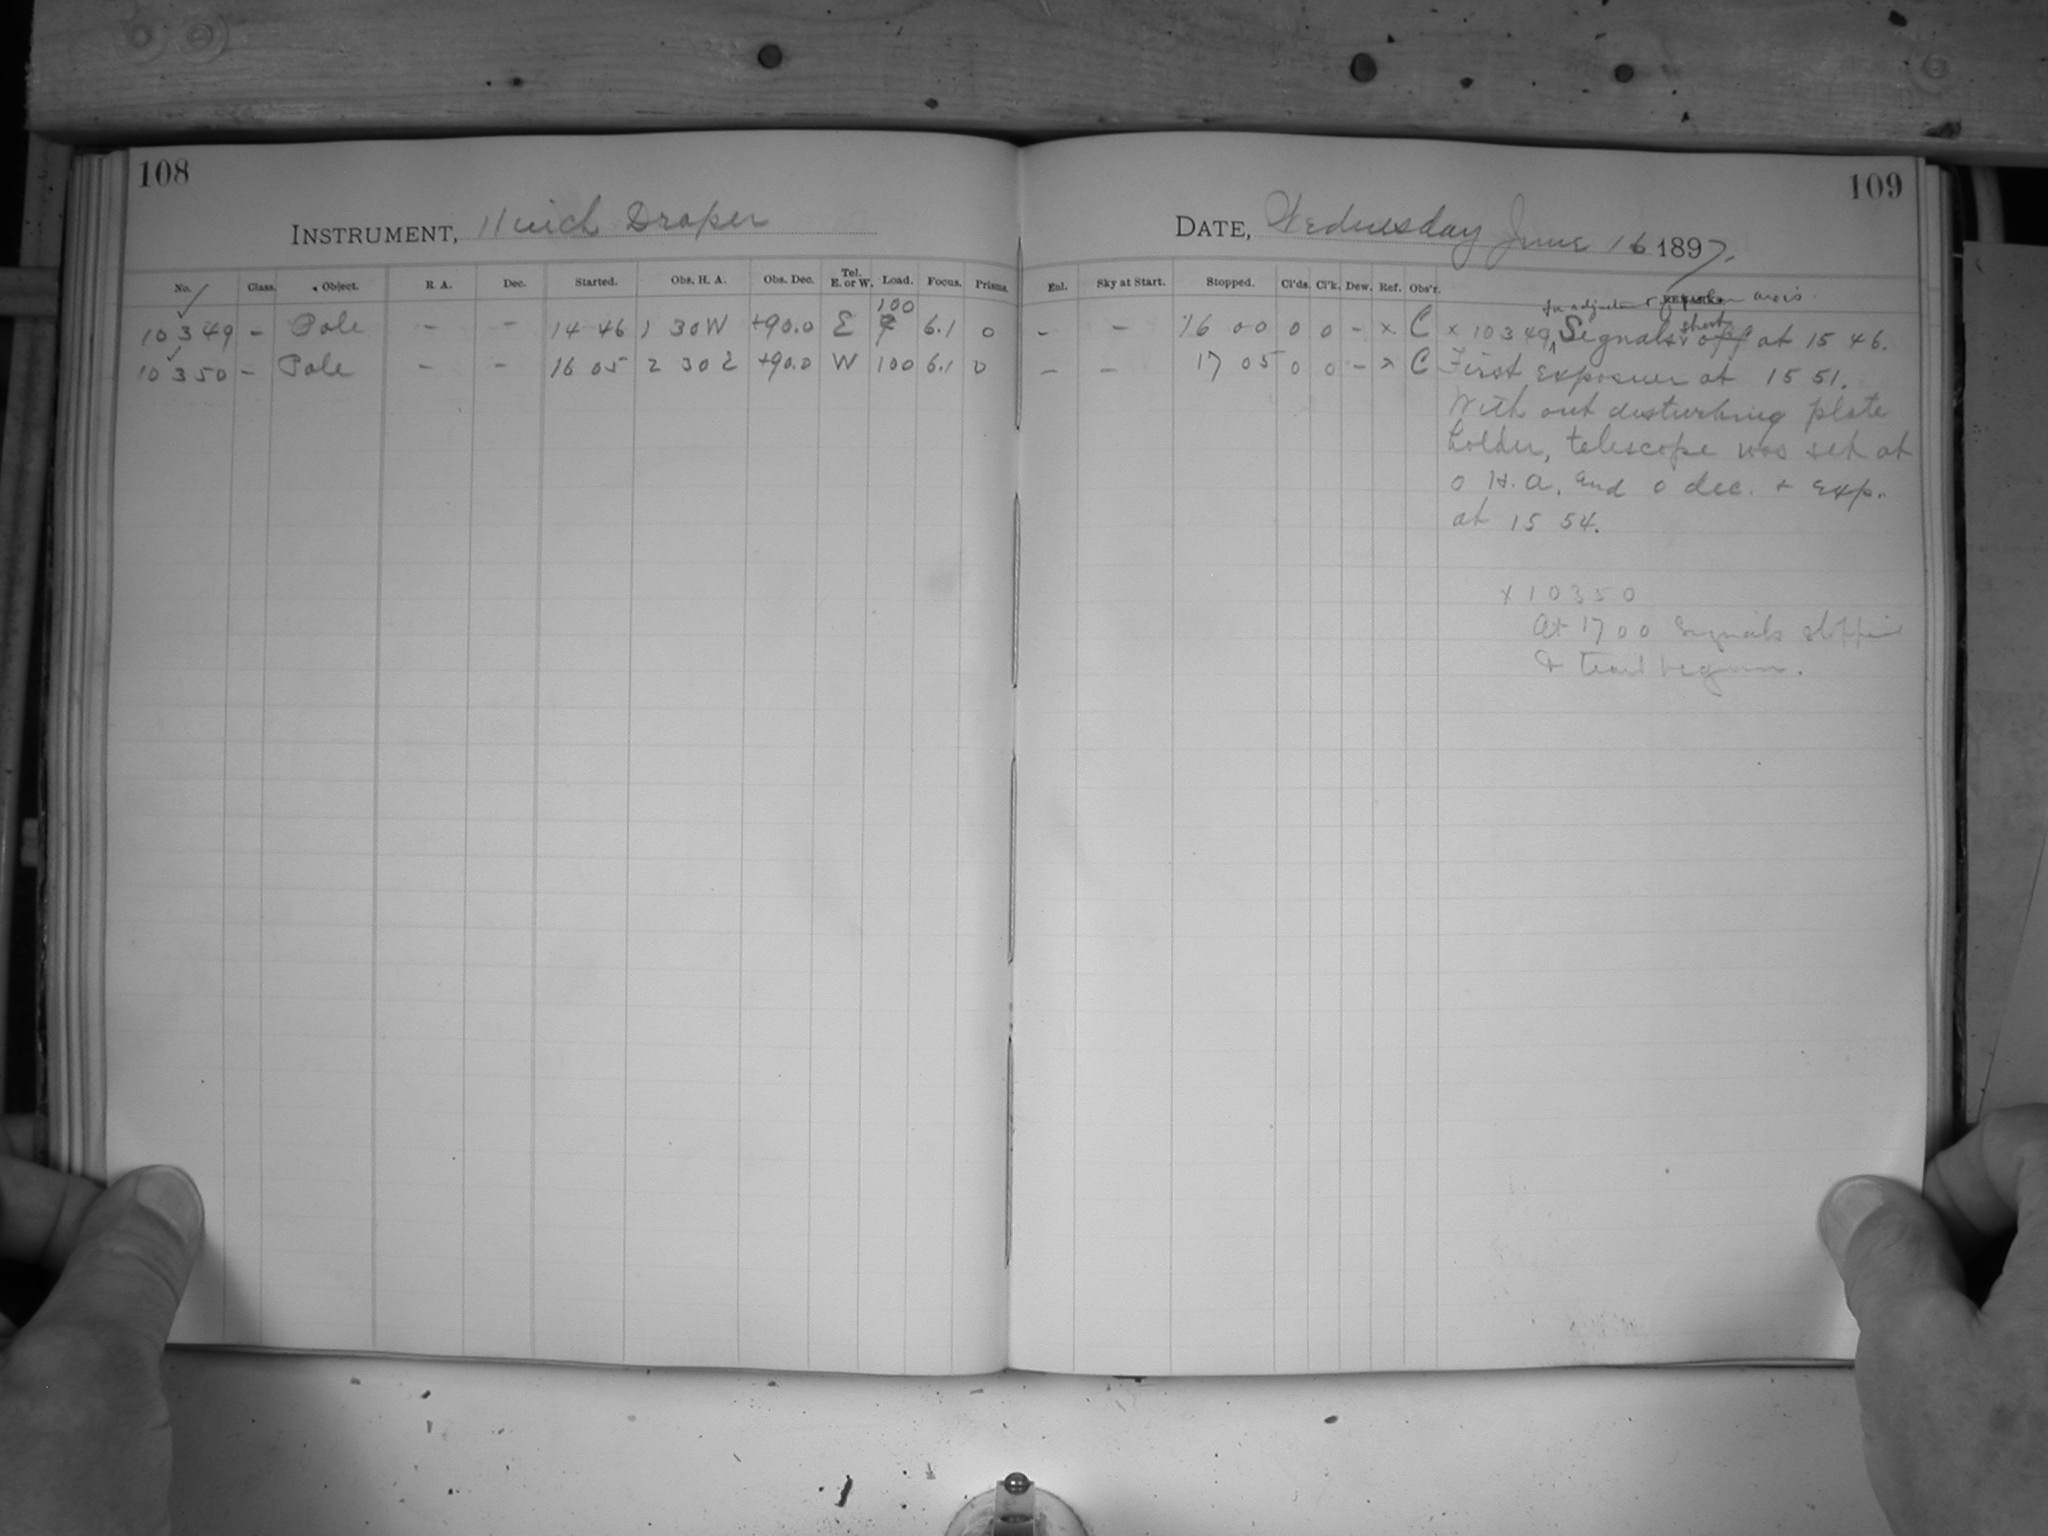 108
109
INSTRUMENT, 11 inch Draper
DATE, Wednesday June 16 1897.
No. Class. Object. R A. Dec. Started. Obs. H. A. Obs. Dec. Tel. E. or W. Load. Focus. Prisms.
Enl. Sky at Start. Stopped. Cl'ds. Cl'k. Dew. Ref. Obs'r. REMARKS.
for adjustment of polar axis.
100
10349 - Pole - - 14 46 1 30W +90.0 E 6.1 0 - - 16 00 0 0 - x C x 10349 Signals short off at 15 46.
10350 - Pole - - 16 05 2 30 E +90.0 W 100 6.1 0 - - 17 05 0 0 - x C First exposure at 15 51.
With out disturbing plate
holder, telescope was set at
0 H. A. and 0 dec. + exp.
at 15 54.
x 10350
At 17 00 signals stopped
& trail begun.